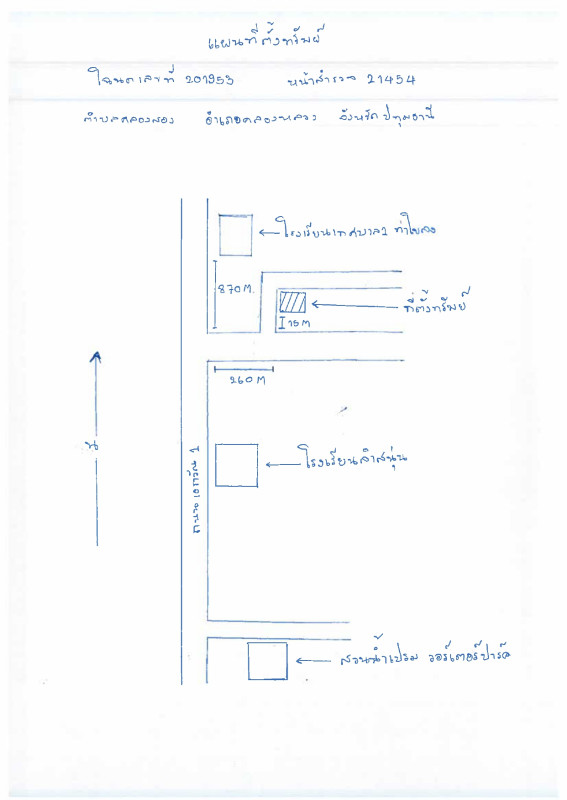 แผนที่ตั้งทรัพย์
โฉนดเลขที่ 201953 หน้าสำรวจ 21454
ตำบลคลองสอง อำเภอคลองหลวง จังหวัดปทุมธานี
โรงเรียนเทศบาล1 ท่าโขลง
870 M.
ที่ตั้งทรัพย์
15 M
260 M
น
โรงเรียนลำสนุ่น
ถนน 1
สวนน้ำเปรม วอร์เตอร์ปาร์ค